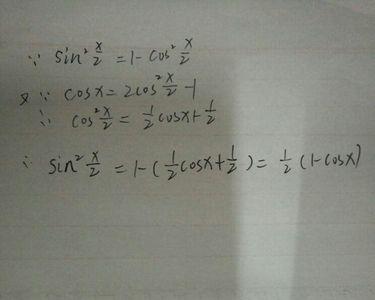 ∵ sin² x/2 = 1 - cos² x/2
又∵ cosx = 2cos² x/2 - 1
∴ cos² x/2 = 1/2 cosx + 1/2
∴ sin² x/2 = 1 - (1/2 cosx + 1/2) = 1/2 (1 - cosx)